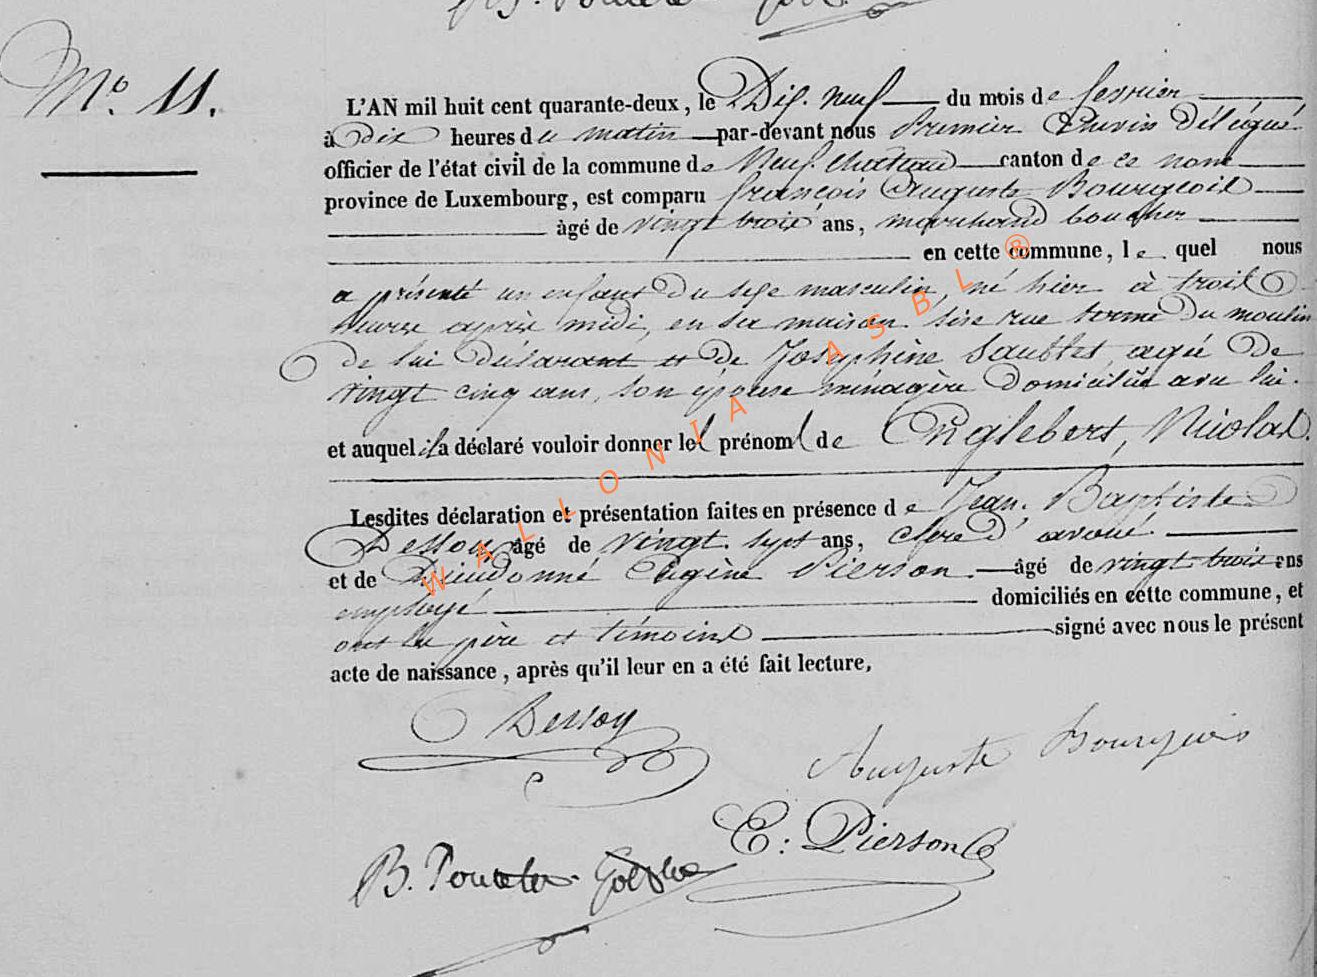 N° 11.
L'AN mil huit cent quarante-deux, le Dix-neuf du mois de fevrier
à Dix heures du matin par-devant nous Premier Echevin Délégué
officier de l'état civil de la commune de Neufchateau canton de ce nom
province de Luxembourg, est comparu François Auguste Bourgeois
âgé de vingt trois ans, marchand boucher
en cette commune, le quel nous
a présenté un enfant Du sexe masculin, né hier à trois
heures après midi, en sa maison sise rue Du moulin
De lui déclarant et De Joséphine agée De
vingt cinq ans, son épouse ménagère Domiciliée avec lui.
et auquel il a déclaré vouloir donner les prénoms de Englebert, Nicolas.
Lesdites déclaration et présentation faites en présence de Jean-Baptiste
Dessoy âgé de vingt-sept ans, clerc D'avoué
et de Dieudonné Eugène Pierson âgé de vingt trois ans
employé domiciliés en cette commune, et
ont les père et témoins signé avec nous le présent
acte de naissance, après qu'il leur en a été fait lecture,
Dessoy
Auguste Bourgeois
E: Pierson
B.
WALLONIA ASBL ®